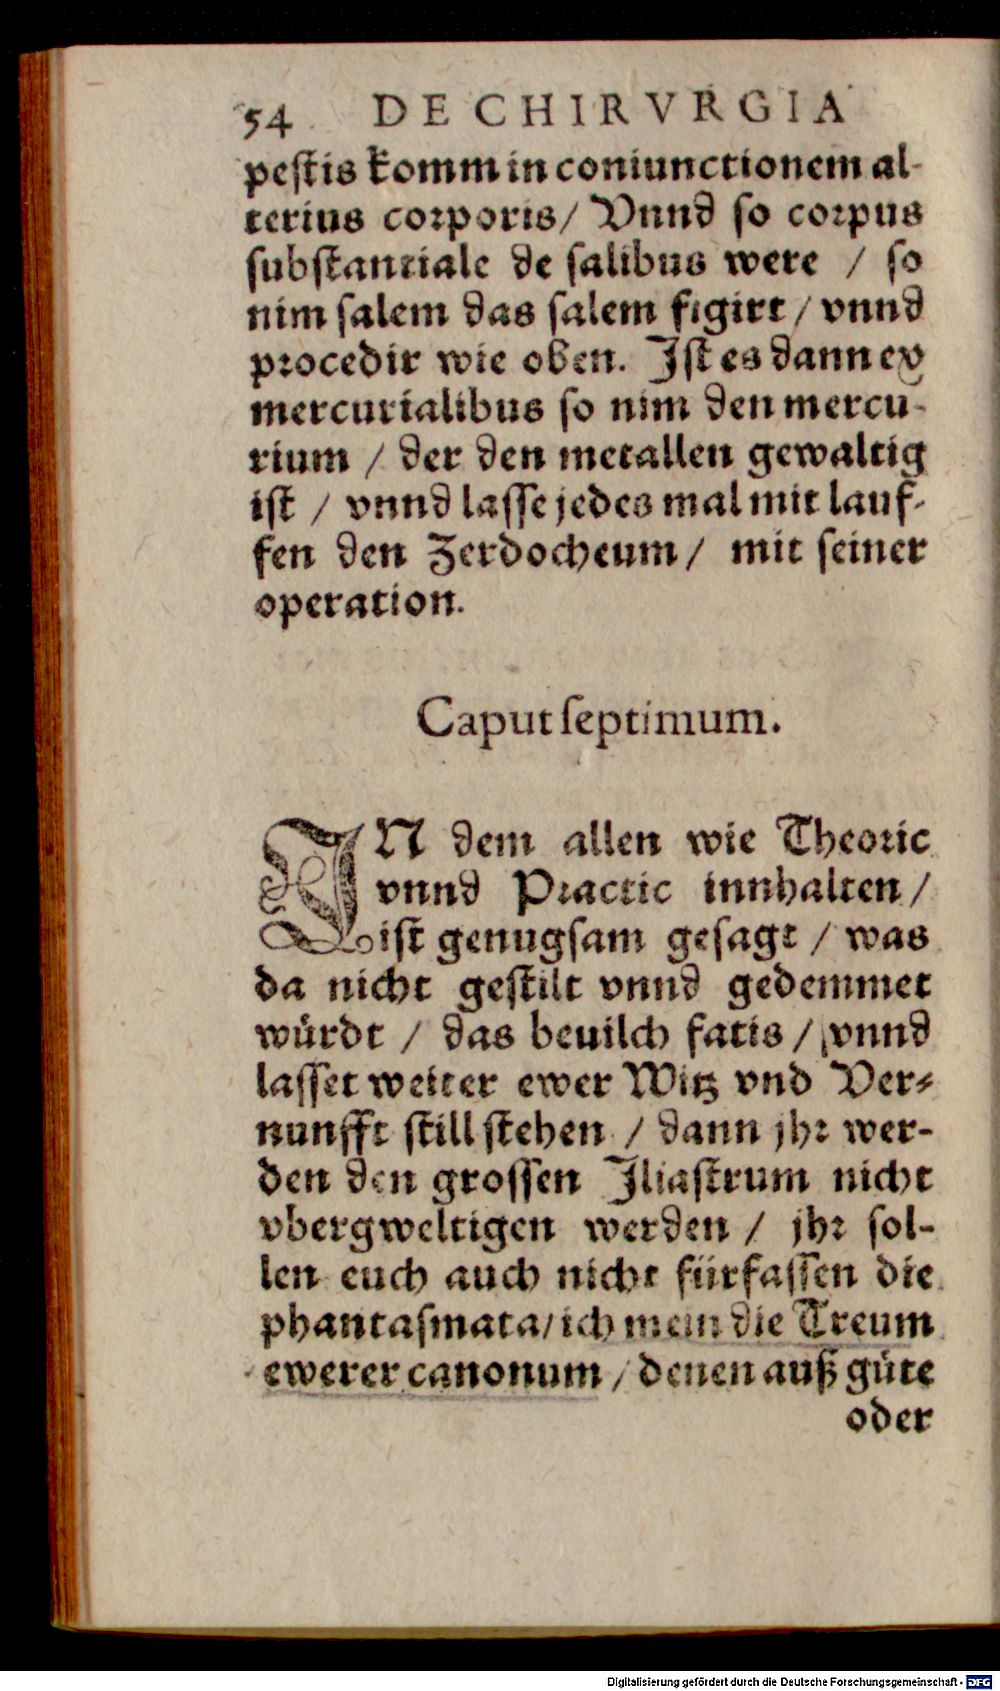 54 DE CHIRVRGIA
pestis komm in coniunctionem al-
terius corporis / Vnnd so corpus
substantiale de salibus were / so
nim salem das salem figirt / vnnd
procedir wie oben. Ist es dann ex
mercurialibus so nim den mercu-
rium / der den metallen gewaltig
ist / vnnd lasse jedes mal mit lauf-
fen den Zerdocheum / mit seiner
operation.
Caput septimum.
IN dem allen wie Theoric
vnnd Practic innhalten /
ist genugsam gesagt / was
da nicht gestilt vnnd gedemmet
würdt / das beuilch fatis / vnnd
lasset weiter ewer Witz vnd Ver-
nunfft still stehen / dann jhr wer-
den den grossen Iliastrum nicht
vbergweltigen werden / jhr sol-
len euch auch nicht fürfassen die
phantasmata / ich mein die Treum
ewerer canonum / denen auß güte
oder
Digitalisierung gefördert durch die Deutsche Forschungsgemeinschaft - DFG